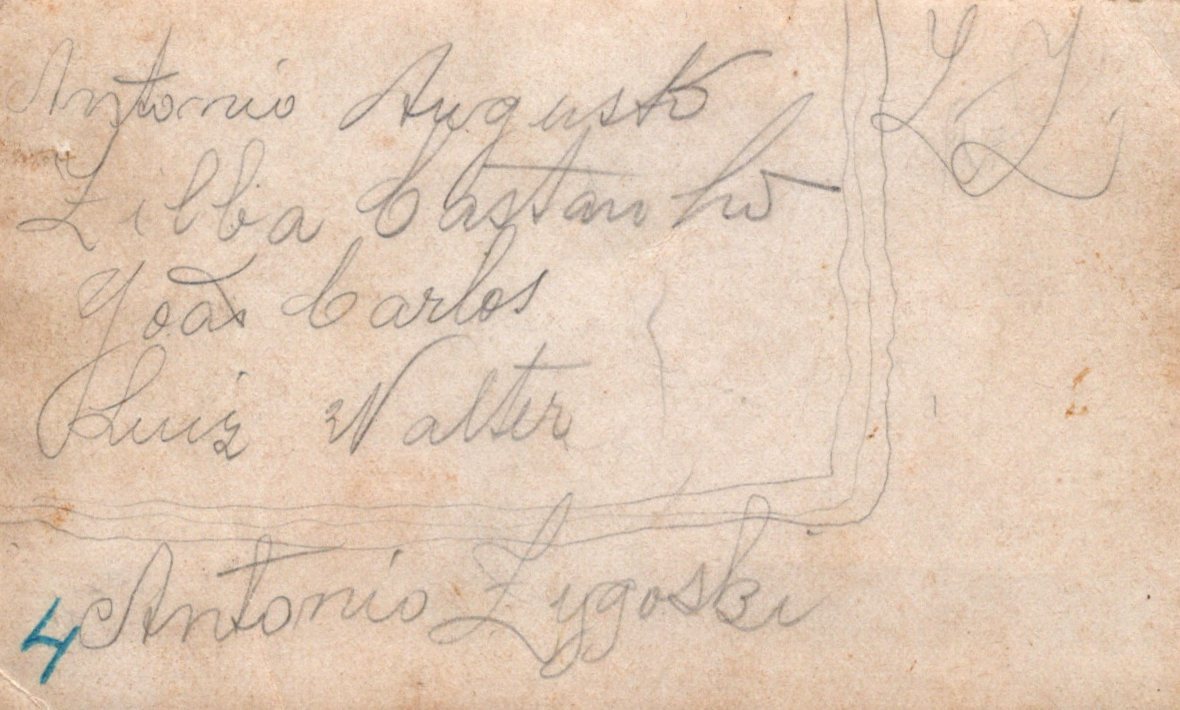 Antonio Augusto
Zilba Castanho
João Carlos
Luiz Walter
4 Antonio Zygoski